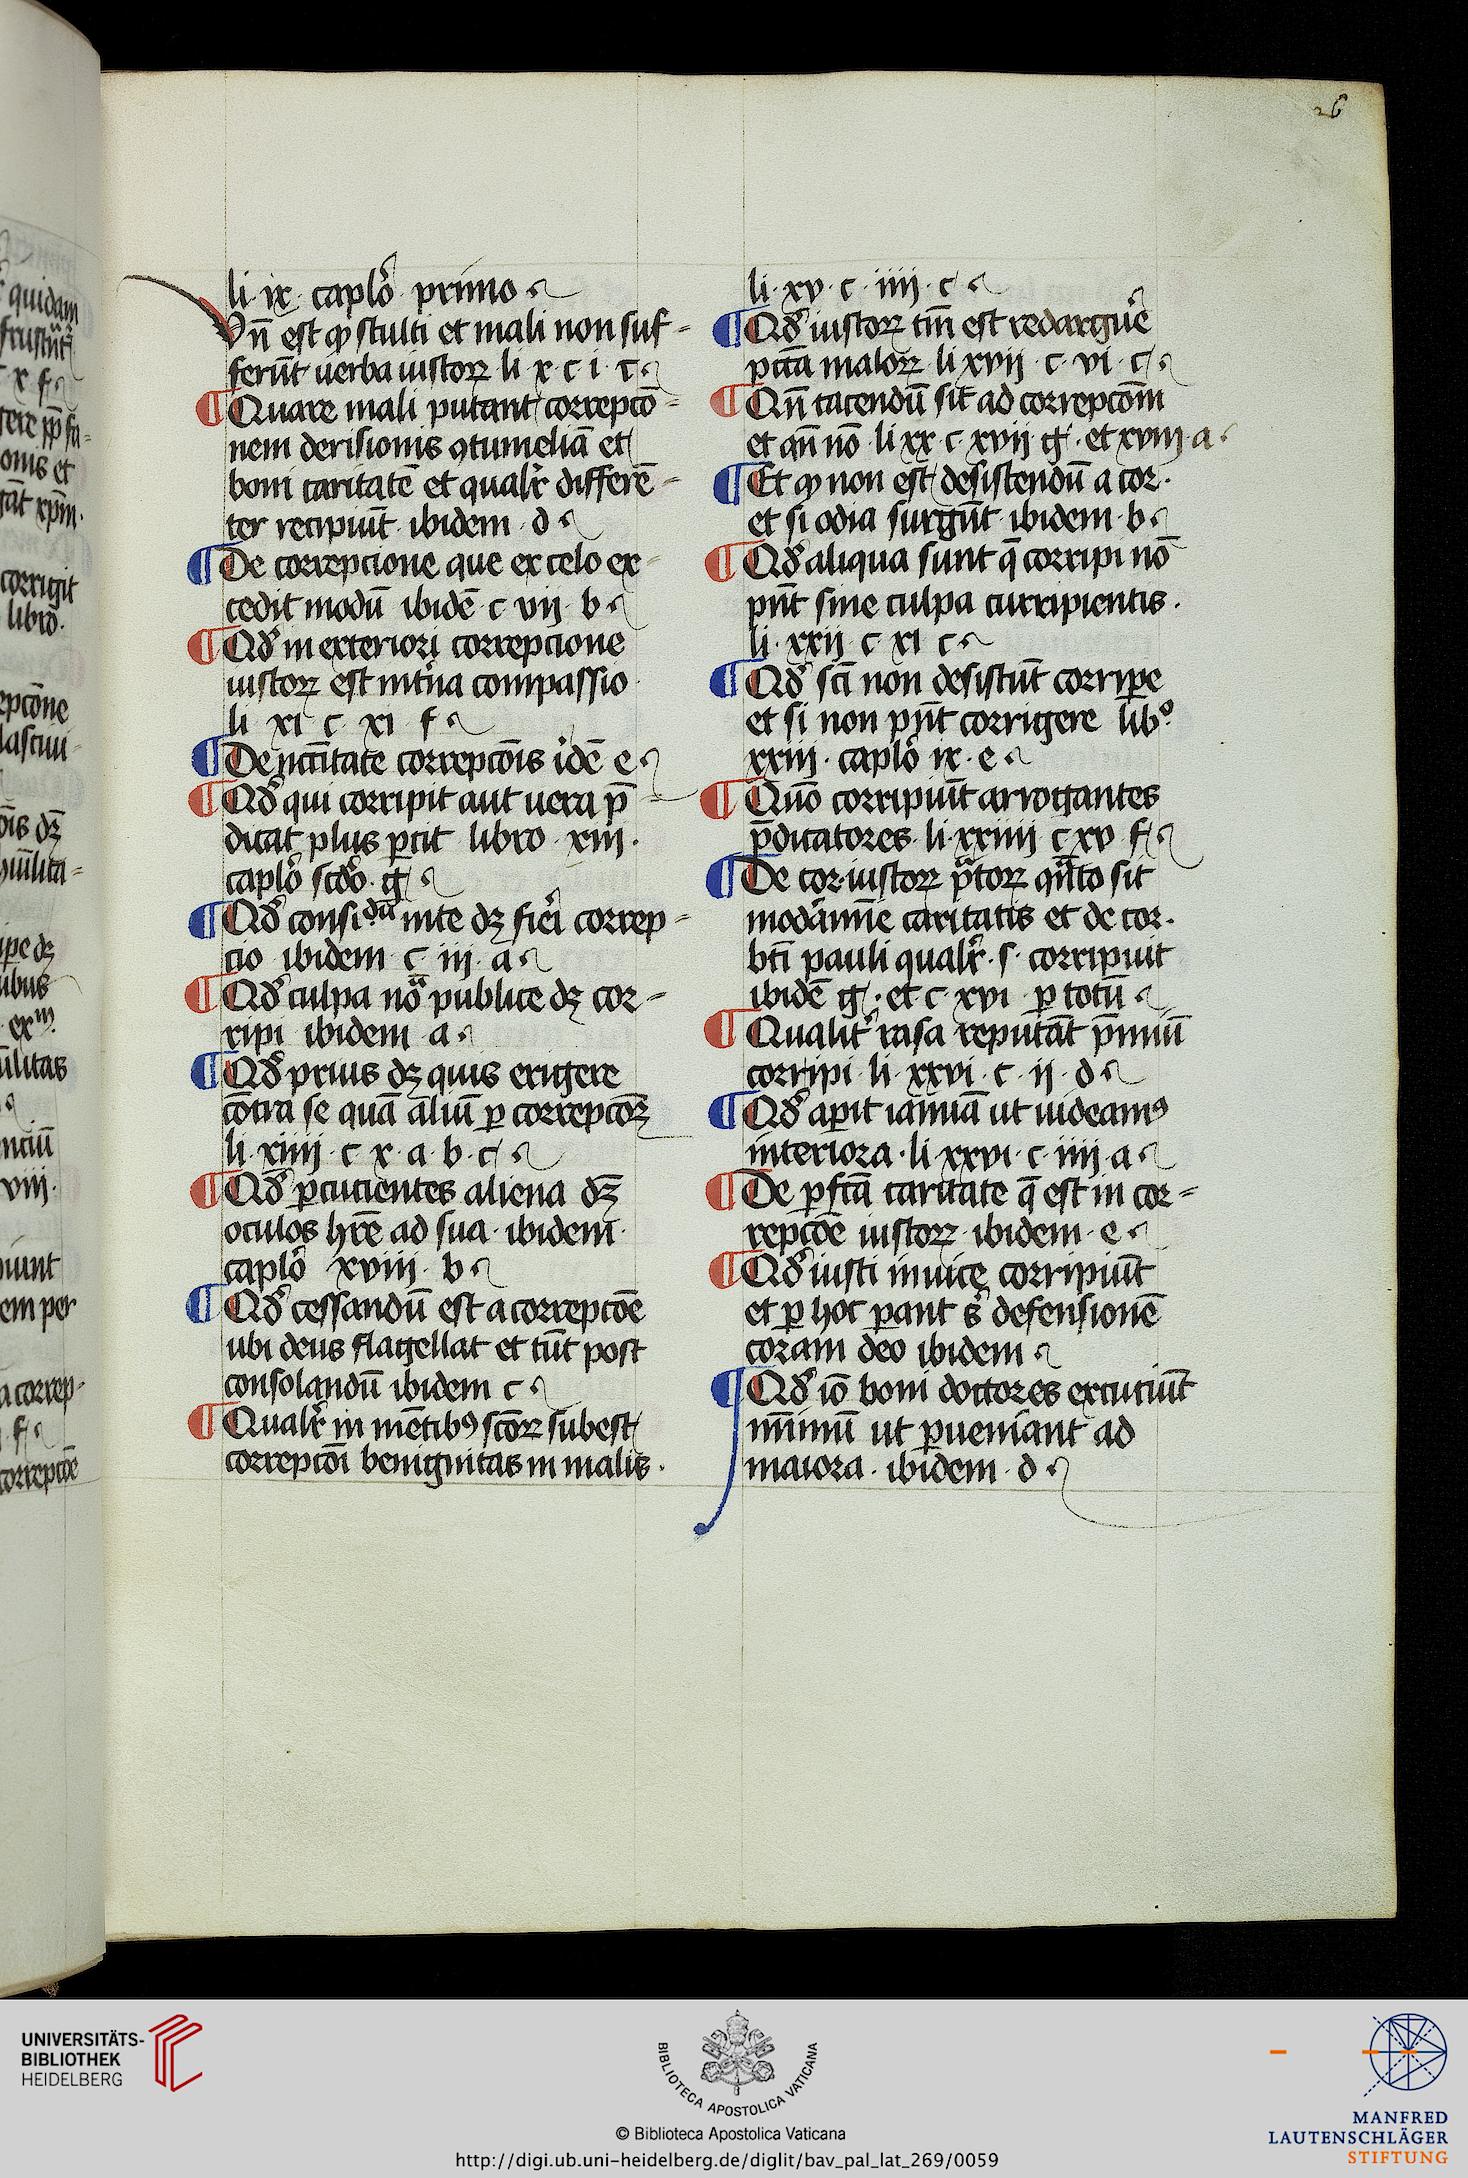 26
li · ix · caplo᷒ · primo
Vn̄ est ꝙ stulti et mali non suf-
ferūt uerba iustoꝝ li · x · c · i · c
¶ Quare mali putant correpco-
nem derisionis ꝯtumeliā et
boni caritatē et qualr̓ differē-
ter recipiūt · ibidem · d
¶ De correpcione que ex celo ex-
cedit modū ibidē · c · vii · b
¶ Qd̓ in exteriori correpcione
iustoꝝ est int̓na compassio
li · xi · c · xi · f
¶ De nccītate correpcōis idē e
¶ Qd̓ qui corripit aut uera p̄
dicat plus ꝑcit libro · xiii ·
caplo᷒ scdo᷒ · g
¶ Qd̓ consid̓ante dꝫ fieri correp-
cio ibidem · c · iii · a
¶ Qd̓ culpa nō publice dꝫ cor-
ripi ibidem · a
¶ Qd̓ prius dꝫ quis erigere
cōtra se quā aliū ꝑ correpcōꝫ
li · xiiii · c · x · a · b · c
¶ Qd̓ ꝑcucientes aliena dꝫ
oculos hr̄e ad sua · ibidem ·
caplo᷒ xviii · b
¶ Qd̓ cessandū est a correpcōe
ubi deus flagellat et tūt post
consolandū ibidem c
¶ Qualr̓ in mētibꝰ scōꝝ subest
correpcōi benignitas in malis ·
li · xv · c · iiii · c
¶ Qd̓ iustoꝝ tm̄ est redargue᷒
pcc̄ta maloꝝ · li xvii · c · vi · c
¶ Qn̄ tacendū sit ad correpcōm
et qn̄ nō · li xx · c · xvii g · et xviii · a ·
¶ Et ꝙ non est desistendū a cor ·
et si odia surgūt · ibidem · b
¶ Qd̓ aliqua sunt q̄ corripi nō
pn̄t sine culpa curripientis ·
li · xxii · c · xi · c
¶ Qd̓ scī non desistūt corripe
et si non pn̄t corrigere libº
xxiii · caplo᷒ ix · e
¶ Quō corripiūt arrogantes
p̄dicatores · li · xxiiii · c · xv · f
¶ De cor · iustoꝝ p̄toꝝ qn̄to sit
moderamine caritatis et de cor ·
bt̄i pauli qualr̓ · s · corripuit
ibidē g · et · c · xvi · ꝑ totū
¶ Qualit̓ rasa reputāt p̄miū
corripi · li · xxvi · c · ii · d
¶ Qd̓ aꝑit ianuā ut uideamꝰ
interiora · li xxvi · c · iiii · a
¶ De ꝑfcā caritate q̄ est in cor-
repcōe iustoꝝ · ibidem · e
¶ Qd̓ iusti inuicē corripiūt
et ꝑ hoc ꝑant s᷒ defensionē
coram deo ibidem
¶ Qd̓ iō boni doctores excuciūt
mīnimū ut ꝑueniant ad
maiora · ibidem · d
UNIVERSITÄTS-
BIBLIOTHEK
HEIDELBERG
BIBLIOTECA APOSTOLICA VATICANA
© Biblioteca Apostolica Vaticana
http://digi.ub.uni-heidelberg.de/diglit/bav_pal_lat_269/0059
MANFRED
LAUTENSCHLÄGER
STIFTUNG